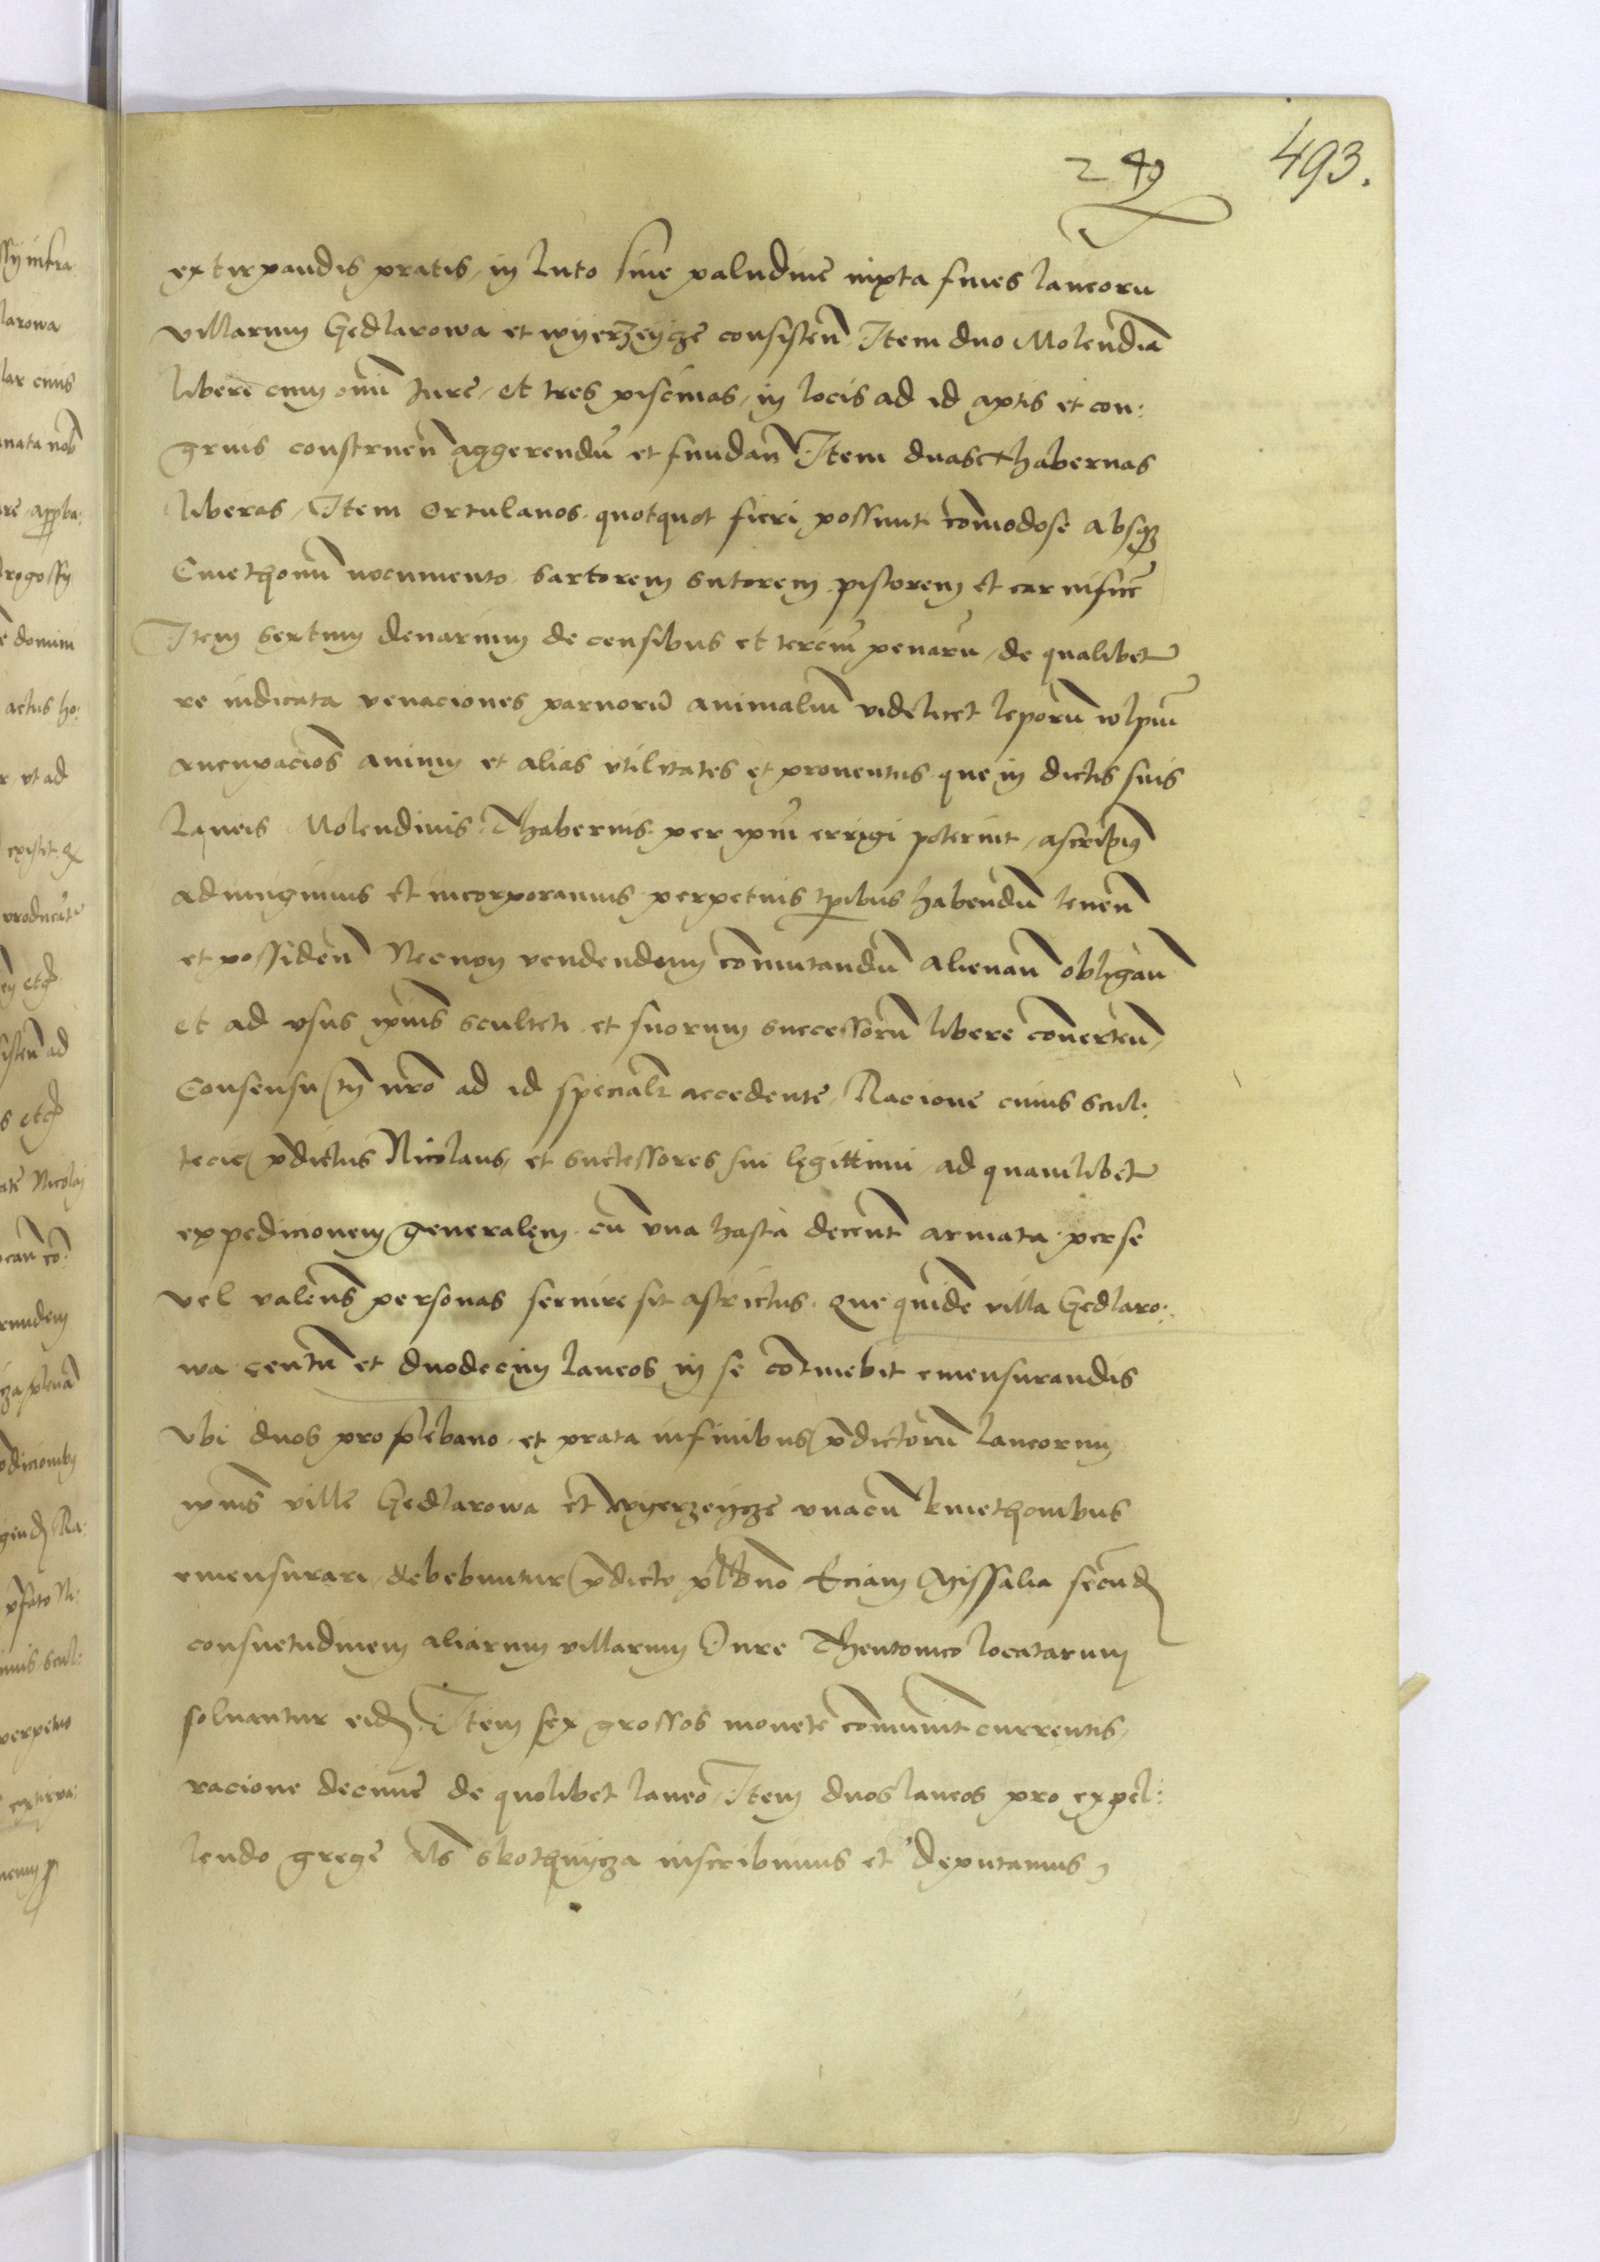 249
493.
extirpandis pratis, in luto sive paludine iuxta fines laneoru
villarum Gedlarowa et wyerzeycze consisten Item duo Molendia
libere cum omi Jure, et tres piscinas, in locis ad id aptis et con:
gruis construen aggerendu et fundan Item duas Thabernas
liberas, Item Ortulanos quotquot fieri possunt comodose absq
Cmethonu nocumento Sartorem Sutorem pistorem et carnifice
Item sextum denarium de censibus et terciu penaru, de qualibet
re iudicata venaciones parvoru animaliu videlicet leporu wlpiu
aucupacios avium et alias utilitates et proventus que in dictis suis
laneis Molendinis Thabernis per ipm errigi poterint, ascribim
adiungimus et incorporamus perpetuis tpibus habendu tenen
et possiden Necnon vendendum comutandu alienan obligan
et ad usus ipius Sculteti et suorum successoru libere converten,
Consensu tn nro ad id speciali accedente, Racione cuius Scul:
tecie pdictus Nicolaus, et successores sui legittimi ad quamlibet
expedicionem generalem cu una hasta decent armata per se
vel valens personas servire sit astrictus. Que quide villa Gedlaro:
wa centu et duodecim laneos in se continebit emensurandis
Ubi duos pro plebano et prata in finibus pdictoru laneorum
ipius ville Gedlarowa et wyerzeycze unacu kmethonibus
emensurari debebuntur pdicto plbno Eciam Missalia secund
consuetudinem aliarum villarum Jure Theutonico locatarum
solvantur eid. Item sex grossos monete comunit currentis,
racione decime de quolibet laneo Item duos laneos pro expel:
lendo grege als Skothnycza inscribimus et deputamus